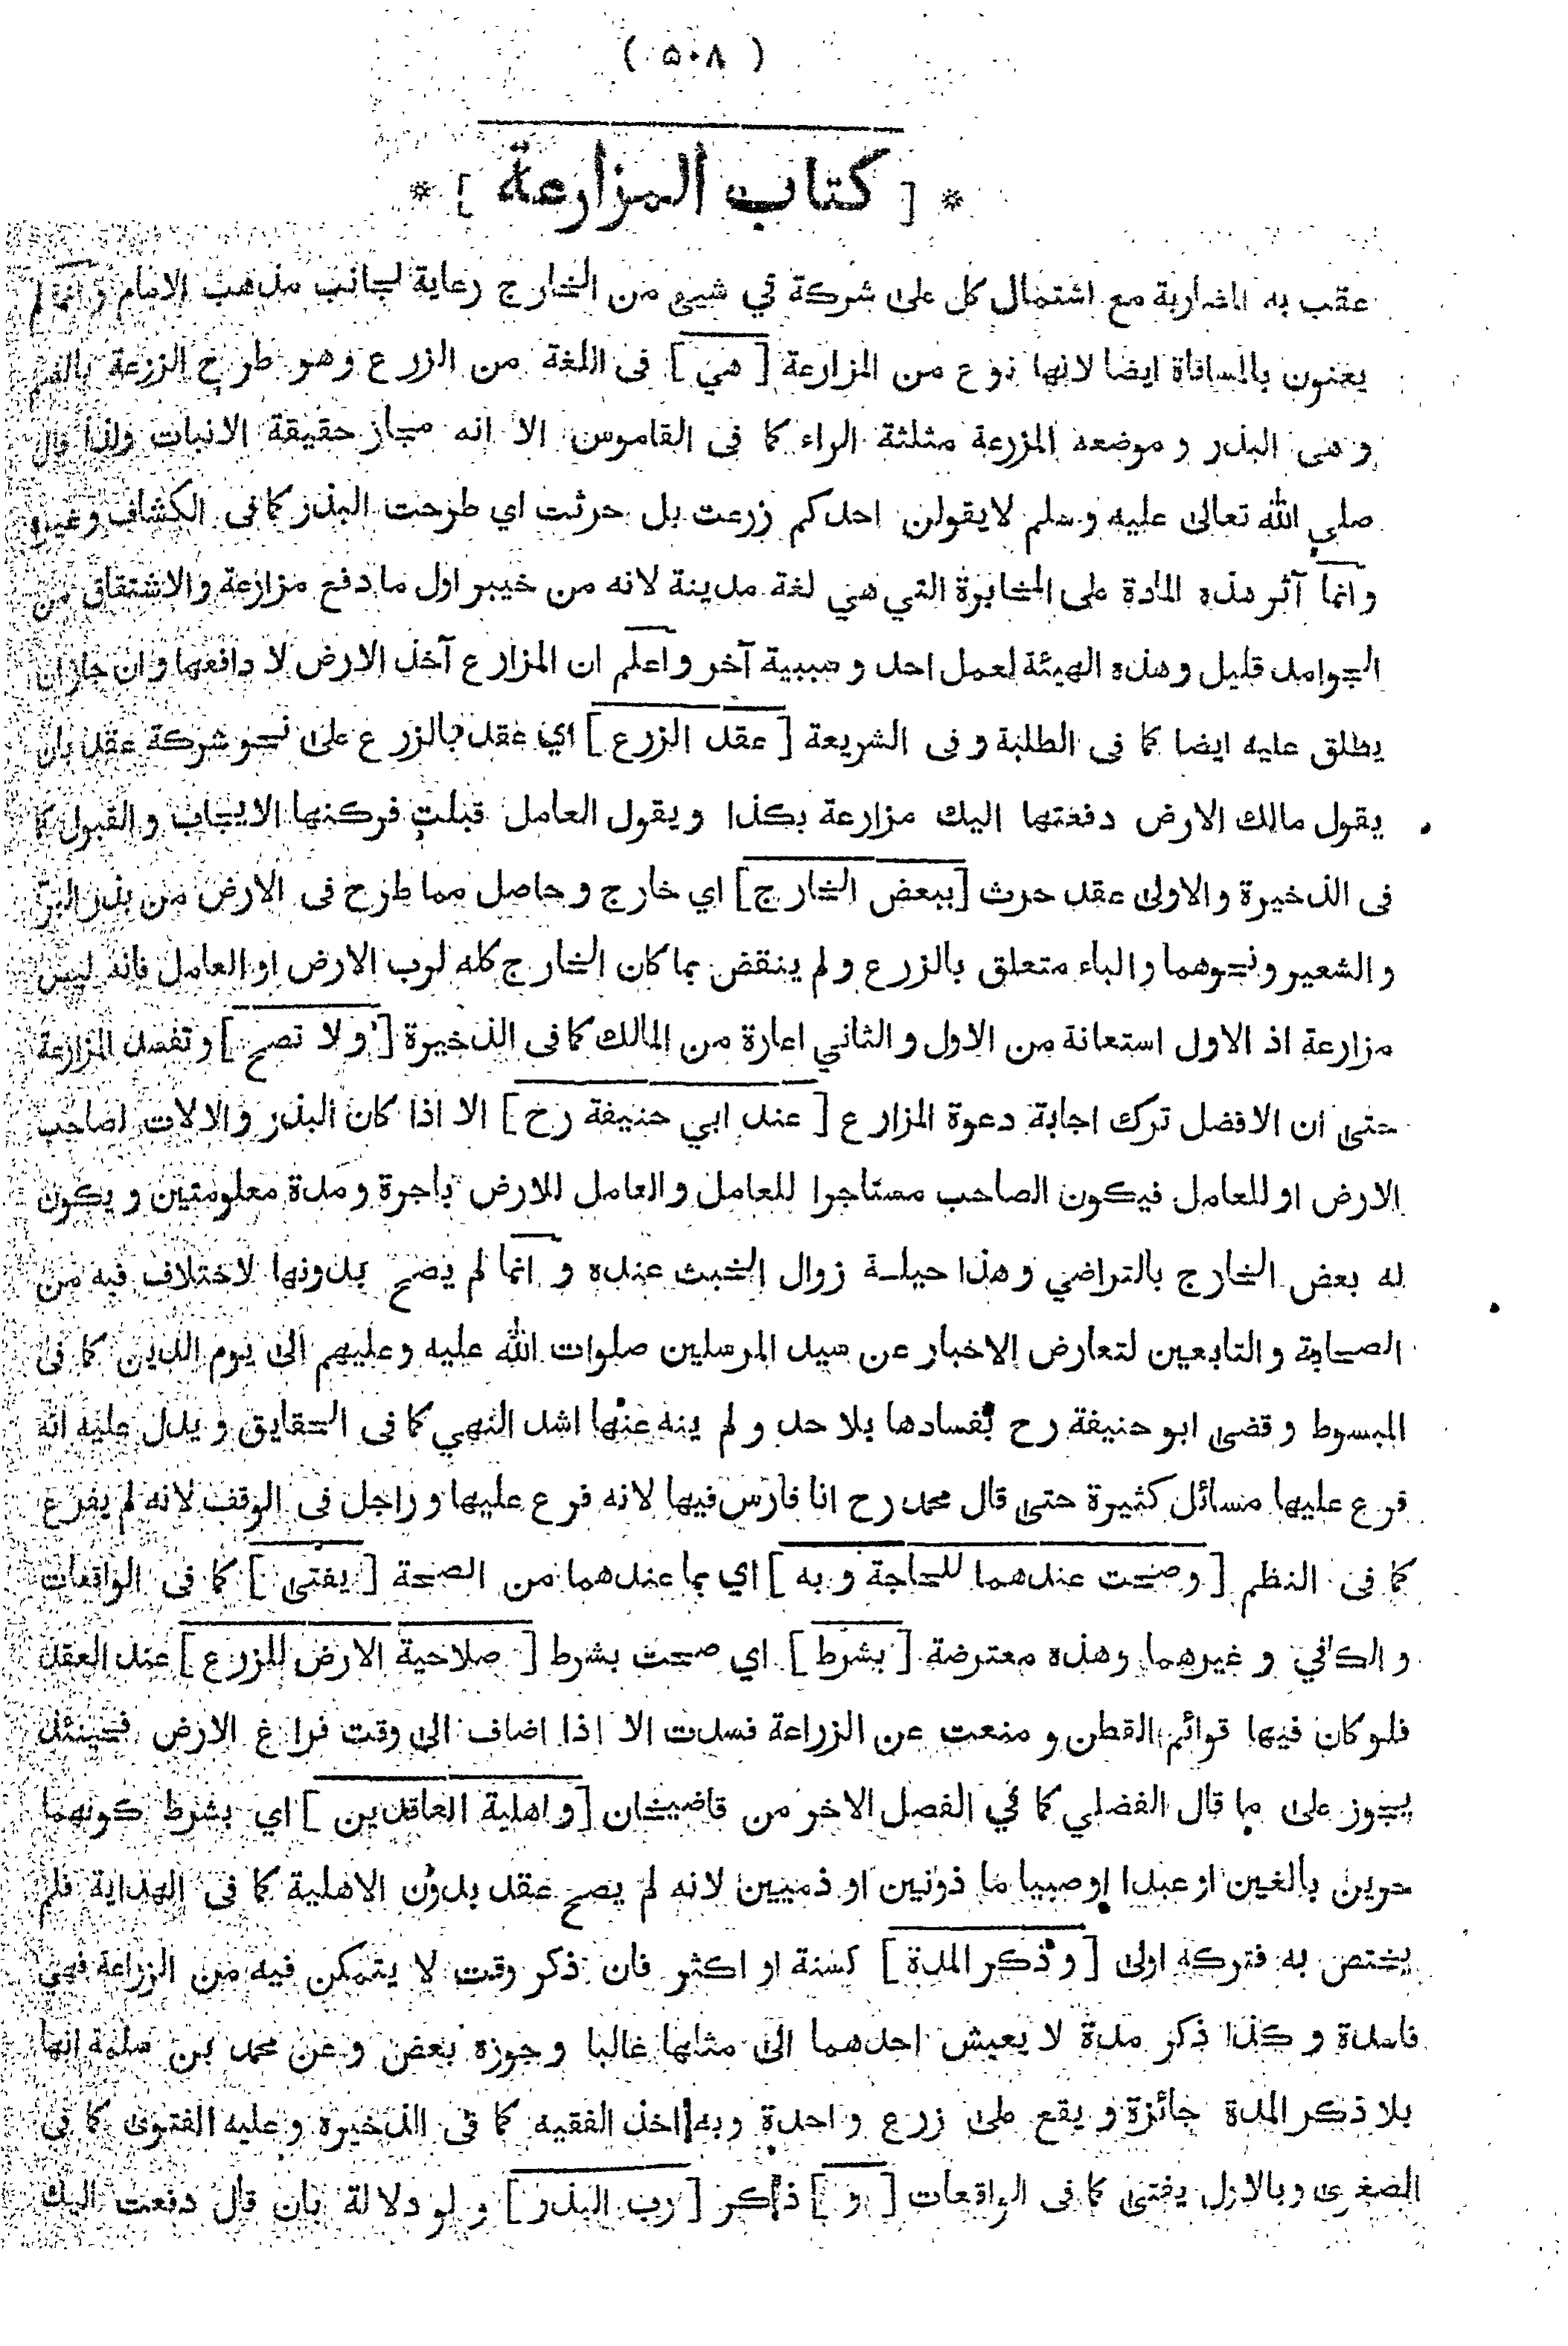 ( ۵۰۸ )
* [ كتاب المزارعة ] *
عقب به المضاربة مع اشتمال كل على شركة في شيئ من الخارج رعاية لجانب مذهب الامام وانما لم
يعنون بالمساقاة ايضا لانها نوع من المزارعة [ هي ] فى اللغة من الزرع وهو طرح الزرعة بالضم
و هى البذر و موضعه المزرعة مثلثة الراء كما فى القاموس الا انه مجاز حقيقة الانبات ولذا قال
صلى الله تعالى عليه وسلم لايقولن احدكم زرعت بل حرثت اي طرحت البذر كما فى الكشاف وغيره
وانما آثر هذه المادة على المخابرة التي هي لغة مدينة لانه من خيبر اول ما دفع مزارعة والاشتقاق من
الجوامد قليل وهذه الهيئة لعمل احد وسببية آخر واعلم ان المزارع آخذ الارض لا دافعها وان جاز ان
يطلق عليه ايضا كما فى الطلبة و فى الشريعة [ عقد الزرع ] اي عقد بالزرع على نحو شركة عقد بان
يقول مالك الارض دفعتها اليك مزارعة بكذا ويقول العامل قبلت فركنها الايجاب والقبول كما
فى الذخيرة والاولى عقد حرث [ ببعض الخارج ] اي خارج وحاصل مما طرح فى الارض من بذر البر
و الشعير ونحوهما والباء متعلق بالزرع ولم ينقض بما كان الخارج كله لرب الارض او العامل فانه ليس
مزارعة اذ الاول استعانة من الاول والثاني اعارة من المالك كما فى الذخيرة [ ولا تصح ] وتفسد المزارعة
حتى ان الافضل ترك اجابة دعوة المزارع [ عند ابي حنيفة رح ] الا اذا كان البذر والالات لصاحب
الارض او للعامل فيكون الصاحب مستاجرا للعامل والعامل للارض باجرة ومدة معلومتين ويكون
له بعض الخارج بالتراضي وهذا حيلة زوال الخبث عنده و انما لم يصح بدونها لاختلاف فيه من
الصحابة والتابعين لتعارض الاخبار عن سيد المرسلين صلوات الله عليه وعليهم الى يوم الدين كما فى
المبسوط وقضى ابو حنيفة رح بفسادها بلا حد ولم ينه عنها اشد النهي كما فى الحقايق ويدل عليه انه
فرع عليها مسائل كثيرة حتى قال محمد رح انا فارس فيها لانه فرع عليها وراجل فى الوقف لانه لم يفرع
كما فى النظم [ وصحت عندهما للحاجة وبه ] اي بما عندهما من الصحة [ يفتى ] كما فى الواقعات
و الكافي و غيرهما وهذه معترضة [ بشرط ] اي صحت بشرط [ صلاحية الارض للزرع ] عند العقد
فلو كان فيها قوائم القطن و منعت عن الزراعة فسدت الا اذا اضاف الى وقت فراغ الارض فحينئذ
يجوز على ما قال الفضلي كما في الفصل الاخر من قاضيخان [ و اهلية العاقدين ] اي بشرط كونهما
حرين بالغين او عبدا او صبيا ماذونين او ذميين لانه لم يصح عقد بدون الاهلية كما فى الهداية فلم
يختص به فتركه اولى [ و ذكر المدة ] كسنة او اكثر فان ذكر وقت لا يتمكن فيه من الزراعة فهي
فاسدة و كذا ذكر مدة لا يعيش احدهما الى مثلها غالبا وجوزه بعض وعن محمد بن سلمة انها
بلا ذكر المدة جائزة و يقع على زرع واحدة وبه اخذ الفقيه كما فى الذخيرة وعليه الفتوى كما في
الصغرى وبالاول يفتى كما فى الواقعات [ و ] ذكر [ رب البذر ] و لو دلالة بان قال دفعت اليك